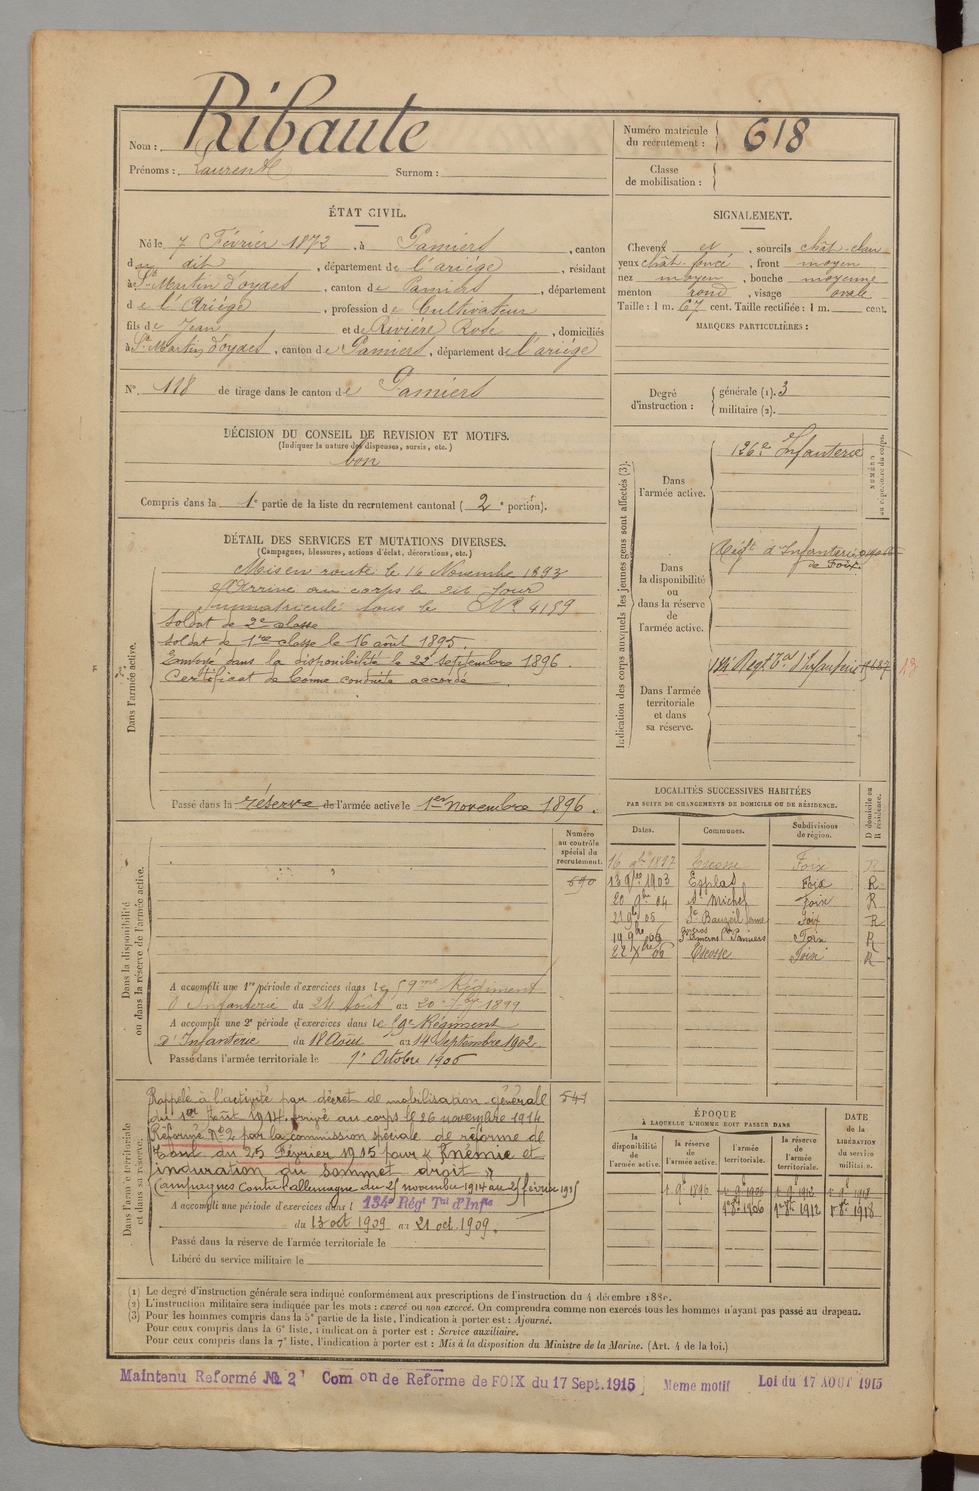 Nom : Ribaute
Prénoms : Laurent Surnom :
Numéro matricule du recrutement : 618
Classe de mobilisation :
ÉTAT CIVIL.
Né le 7 Février 1872, à Pamiers, canton
du dit, département de l'ariége, résidant
à St Martin d'oydes, canton de Pamiers, département
de l'Ariége, profession de Cultivateur
fils de Jean et de Riviére Rose, domiciliés
à St Martin d'oydes, canton de Pamiers, département de l'ariége
N° 118 de tirage dans le canton de Pamiers
DÉCISION DU CONSEIL DE REVISION ET MOTIFS.
(Indiquer la nature des dispenses, sursis, etc.)
bon
Compris dans la 1e partie de la liste du recrutement cantonal (2e portion).
SIGNALEMENT.
Cheveux et, sourcils chât-clair
yeux chât-foncé, front moyen
nez moyen, bouche moyenne
menton rond, visage ovale
Taille : 1 m. 67 cent. Taille rectifiée : 1 m. cent.
MARQUES PARTICULIÈRES :
Degré d'instruction :
générale (1). 3
militaire (2).
DÉTAIL DES SERVICES ET MUTATIONS DIVERSES.
(Campagnes, blessures, actions d'éclat, décorations, etc.)
Dans l'armée active.
Mis en route le 16 Novembre 1893
Arrivé au corps le dit Jour
Immatriculé sous le N° 4159
Soldat de 2e classe
Soldat de 1re classe le 16 août 1895.
Envoyé dans la disponibilité le 22 septembre 1896.
Certificat de bonne conduite accordé
Passé dans la réserve de l'armée active le 1er novembre 1896.
Indication des corps auxquels les jeunes gens sont affectés (3).
NUMÉRO
au répertoire du corps.
Dans l'armée active.
126e Infanterie
Dans la disponibilité ou dans la réserve de l'armée active.
Régt d'Infanterie
de Foix.
Dans l'armée territoriale et dans sa réserve.
Régt Tal d'Infanterie
13
LOCALITÉS SUCCESSIVES HABITÉES
PAR SUITE DE CHANGEMENTS DE DOMICILE OU DE RÉSIDENCE.
Dates. Communes. Subdivisions de région. D domicile ou R résidence.
16 9bre 1897 Foix R
13 9bre 1903 Esplas Foix R
20 9bre 04 St Michel Foix R
21 9bre 05 St Bauzeil Foix R
19 9bre 06 St Amans Pamiers Foix R
22 Xbre 06 Escosse Foix R
Dans la disponibilité ou dans la réserve de l'armée active.
Numéro au contrôle spécial du recrutement.
590
A accompli une 1re période d'exercices dans le 59me Régiment
d'Infanterie du 24 Août au 20 7bre 1899
A accompli une 2e période d'exercices dans le 59e Régiment
d'Infanterie du 18 Août au 14 Septembre 1902.
Passé dans l'armée territoriale le 1er Octobre 1906
Dans l'armée territoriale et dans sa réserve.
541
Rappelé à l'activité par décret de mobilisation générale
du 1er Août 1914. Arrivé au corps le 26 novembre 1914
Réformé N° 2 par la commission spéciale de réforme de
Toul du 25 Février 1915 pour « Anémie et
induration du sommet droit »
Campagnes Contre l'allemagne du 25 novembre 1914 au 25 février 1915
A accompli une période d'exercices dans l 134e Régt Tal d'Infie
du 13 oct 1909 au 21 oct. 1909.
Passé dans la réserve de l'armée territoriale le
Libéré du service militaire le
ÉPOQUE
À LAQUELLE L'HOMME DOIT PASSER DANS
la disponibilité de l'armée active.
la réserve de l'armée active.
l'armée territoriale.
la réserve de l'armée territoriale.
DATE de la LIBÉRATION du service militaire.
1er 9bre 1896 1er 9bre 1906 1er 9bre 1912 1er 9bre 1918
1er 8bre 1906 1er 8bre 1912 1er 8bre 1918
(1) Le degré d'instruction générale sera indiqué conformément aux prescriptions de l'instruction du 4 décembre 1889.
(2) L'instruction militaire sera indiquée par les mots : exercé ou non exercé. On comprendra comme non exercés tous les hommes n'ayant pas passé au drapeau.
(3) Pour les hommes compris dans la 5e partie de la liste, l'indication à porter est : Ajourné.
Pour ceux compris dans la 6e liste, l'indication à porter est : Service auxiliaire.
Pour ceux compris dans la 7e liste, l'indication à porter est : Mis à la disposition du Ministre de la Marine. (Art. 4 de la loi.)
Maintenu Reformé N° 2 Com on de Reforme de FOIX du 17 Sept. 1915 Meme motif Loi du 17 AOUT 1915